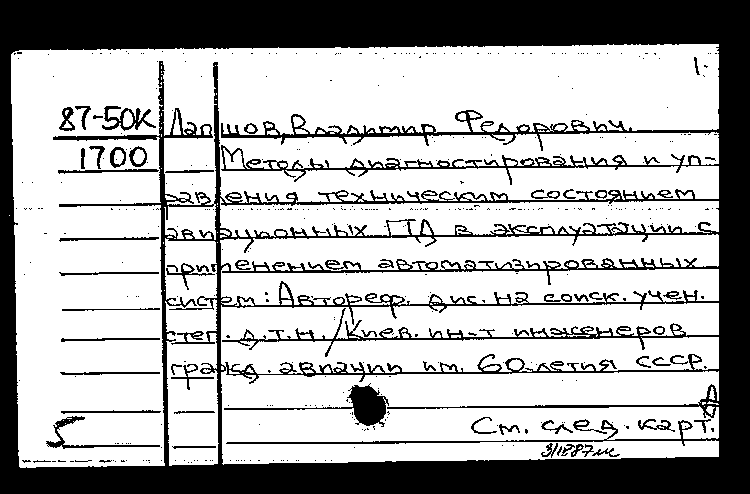 1.
87-50К Лапшов, Владимир Федорович.
1700 Методы диагностирования и уп-
равления техническим состоянием
авиационных ГТД в эксплуатации с
применением автоматизированных
систем: Автореф. дис. на соиск. учен.
степ. д.т.н. / Киев. ин-т инженеров
гражд. авиации им. 60-летия СССР.
5 См. след. карт.